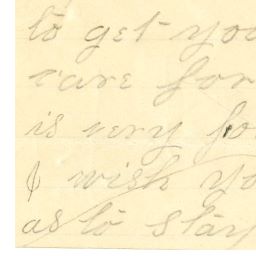 to get you
care for
is very fo
I wish yo
as to stay